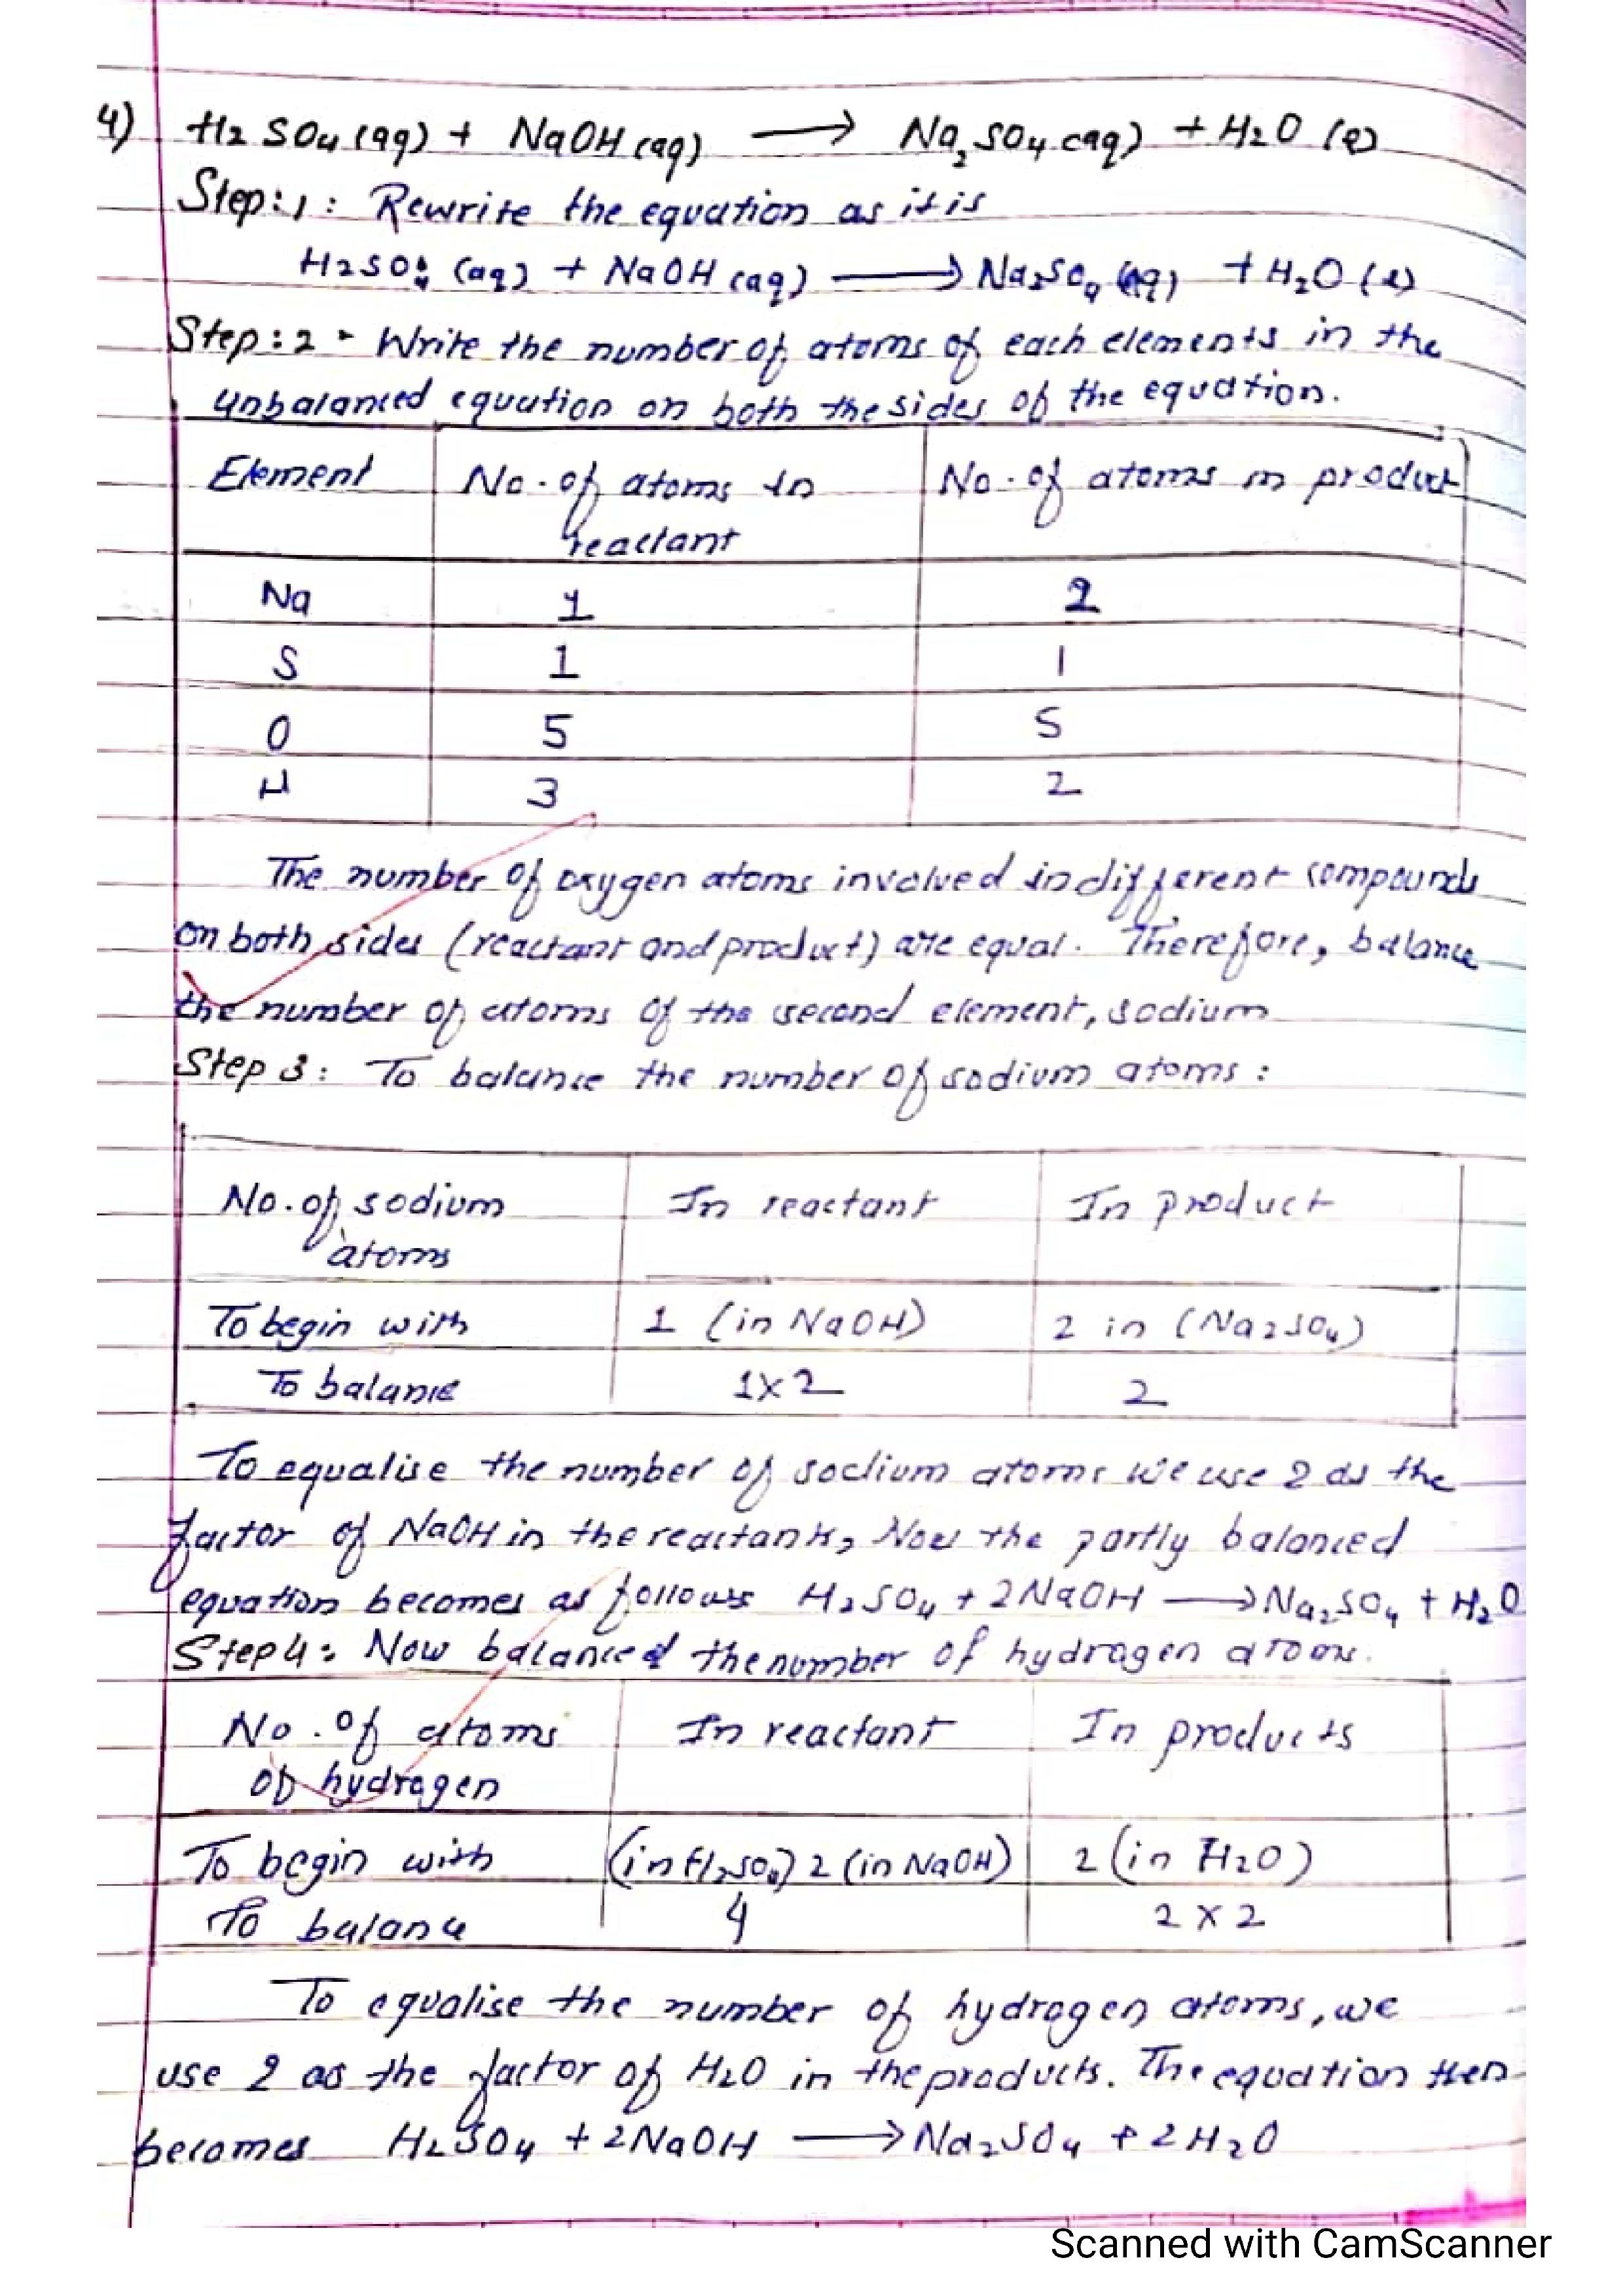 4) H2 SO4 (aq) + NaOH (aq) ⟶ Na2 SO4 (aq) + H2O (l)
Step:1: Rewrite the equation as it is
H2SO4 (aq) + NaOH (aq) ⟶ Na2SO4 (aq) + H2O (l)
Step:2 - Write the number of atoms of each elements in the
unbalanced equation on both the sides of the equation.
Element No. of atoms in No. of atoms in product
reactant
Na 1 2
S 1 1
O 5 5
H 3 2
The number of oxygen atoms involved in different compounds
on both sides (reactant and product) are equal. Therefore, balance
the number of atoms of the second element, sodium
Step 3: To balance the number of sodium atoms:
No. of sodium In reactant In product
atoms
To begin with 1 (in NaOH) 2 in (Na2SO4)
To balance 1x2 2
To equalise the number of sodium atoms we use 2 as the
factor of NaOH in the reactants, Now the partly balanced
equation becomes as follows H2SO4 + 2NaOH ⟶ Na2SO4 + H2O
Step4: Now balanced the number of hydrogen atoms.
No. of atoms In reactant In products
of hydrogen
To begin with (in H2SO4) 2 (in NaOH) 2 (in H2O)
To balance 4 2 x 2
To equalise the number of hydrogen atoms, we
use 2 as the factor of H2O in the products. The equation then
becomes H2SO4 + 2NaOH ⟶ Na2SO4 + 2H2O
Scanned with CamScanner